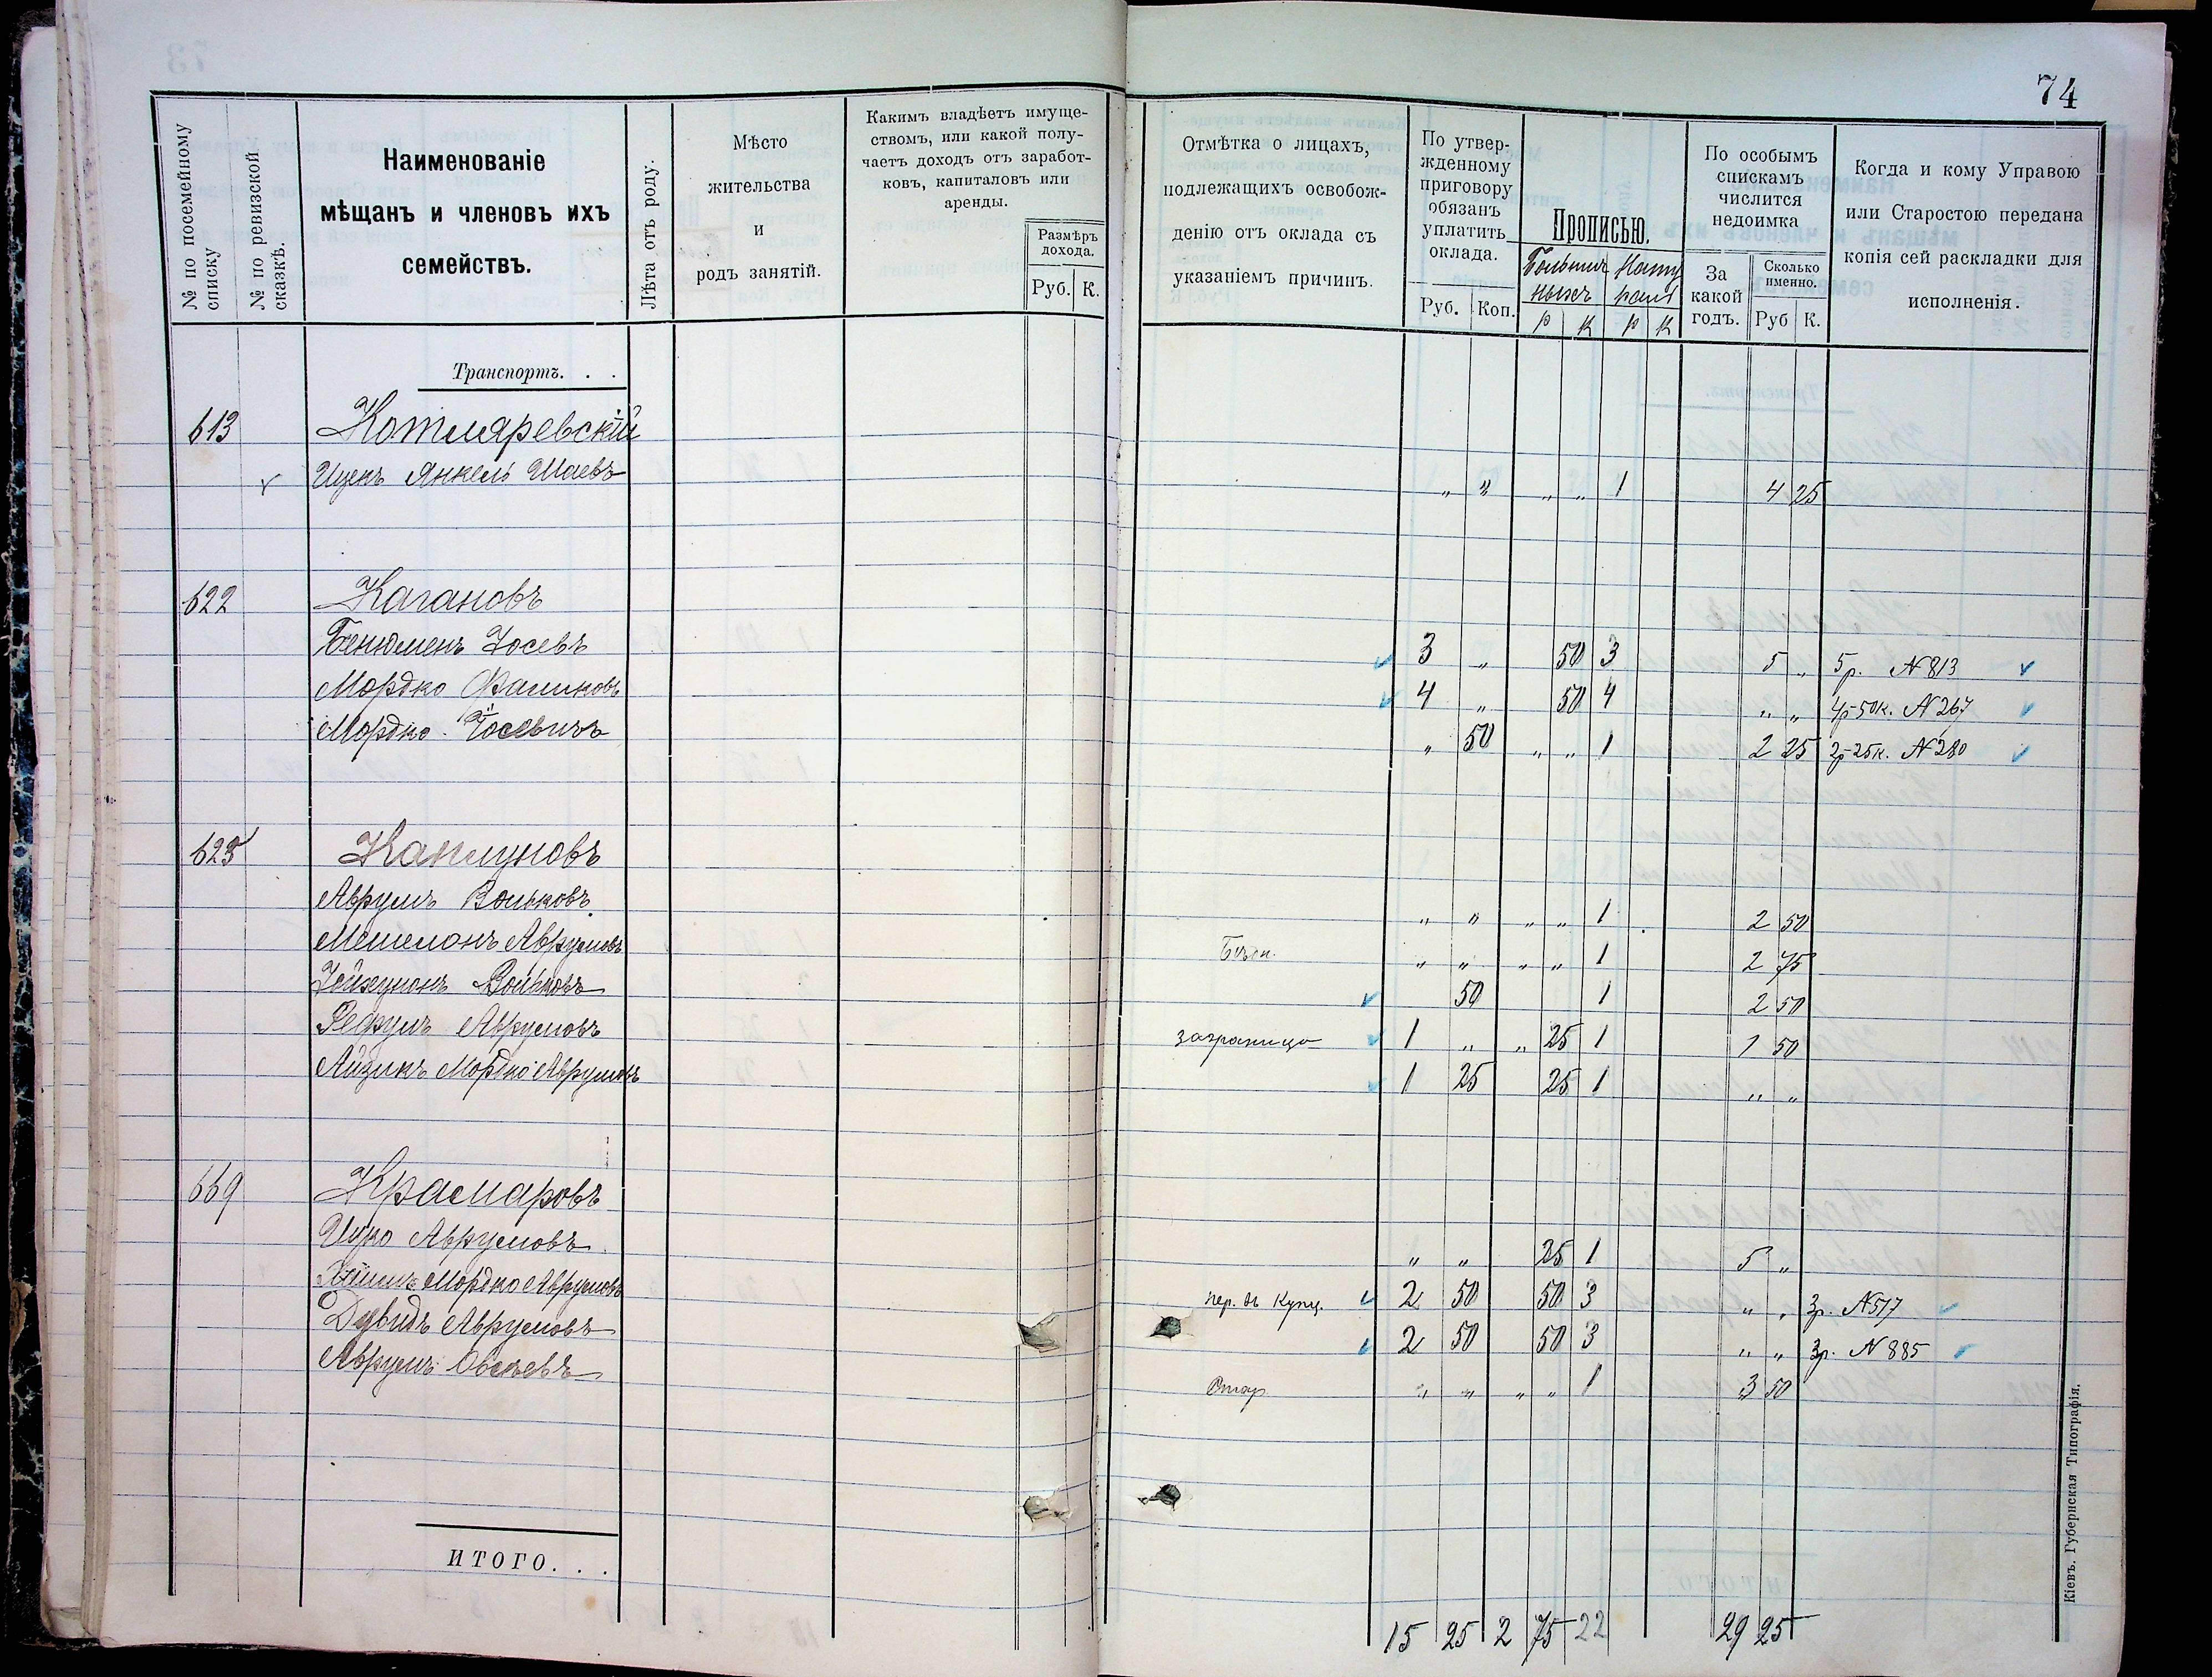 74
№ по посемейному списку
№ по ревизской сказкѣ.
Наименованіе
мѣщанъ и членовъ ихъ
семействъ.
Лѣта отъ роду.
Мѣсто
жительства
и
родъ занятій.
Какимъ владѣетъ имуще-
ствомъ, или какой полу-
чаетъ доходъ отъ заработ-
ковъ, капиталовъ или
аренды.
Размѣръ
дохода.
Руб. К.
Отмѣтка о лицахъ,
подлежащихъ освобож-
денію отъ оклада съ
указаніемъ причинъ.
По утвер-
жденному
приговору
обязанъ
уплатить
оклада.
Руб. Коп.
Прописью.
р к р к
По особымъ
спискамъ
числится
недоимка
За
какой
годъ.
Сколько
именно.
Руб К.
Когда и кому Управою
или Старостою передана
копія сей раскладки для
исполненія.
Транспортъ. . .
613 Котляревскій
Ицекъ Янкель Шаевъ " " " " 1 4 25
622 Кагановъ
Бенюменъ Іосевъ 3 " 50 3 5 " 5р. N 813
Мордко Фаликовъ 4 " 50 4 " " 4р-50к. N 267
Мордко Іосевичъ " 50 " " 1 2 25 2р-25к. N 280
625 Каплуновъ
Аврумъ Вольковъ " " " " 1 2 50
Авруловъ Бѣдн. " " " " 1 2 75
Вольковъ 50 1 2 50
Аврумовъ заграницо 1 " " 25 1 1 50
Айзикъ Мордко Аврумовъ 1 25 25 1 " "
669 Крамаровъ
Ицко Аврумовъ " " 25 1 5 "
Мордко Аврумовъ пер. въ Купц. 2 50 50 3 " " 3р. N 517
Дувидъ Аврумовъ 2 50 50 3 " " 3р. N 885
Аврумъ Овсѣевъ Стар " " " " 1 3 50
ИТОГО. . .
15 25 2 75 22 29 25
Кіевъ. Губернская Типографія.